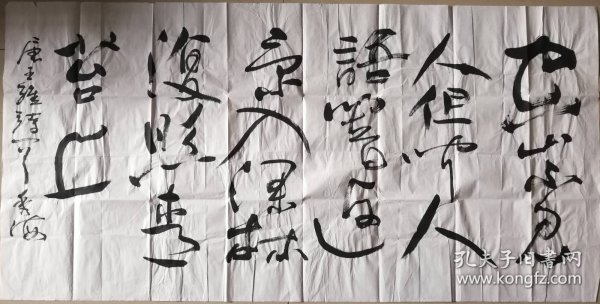 空山不見
人但聞人
語響返
景入深林
復照青
苔上
唐王維詩
孔夫子旧书网
www.kongfz.com